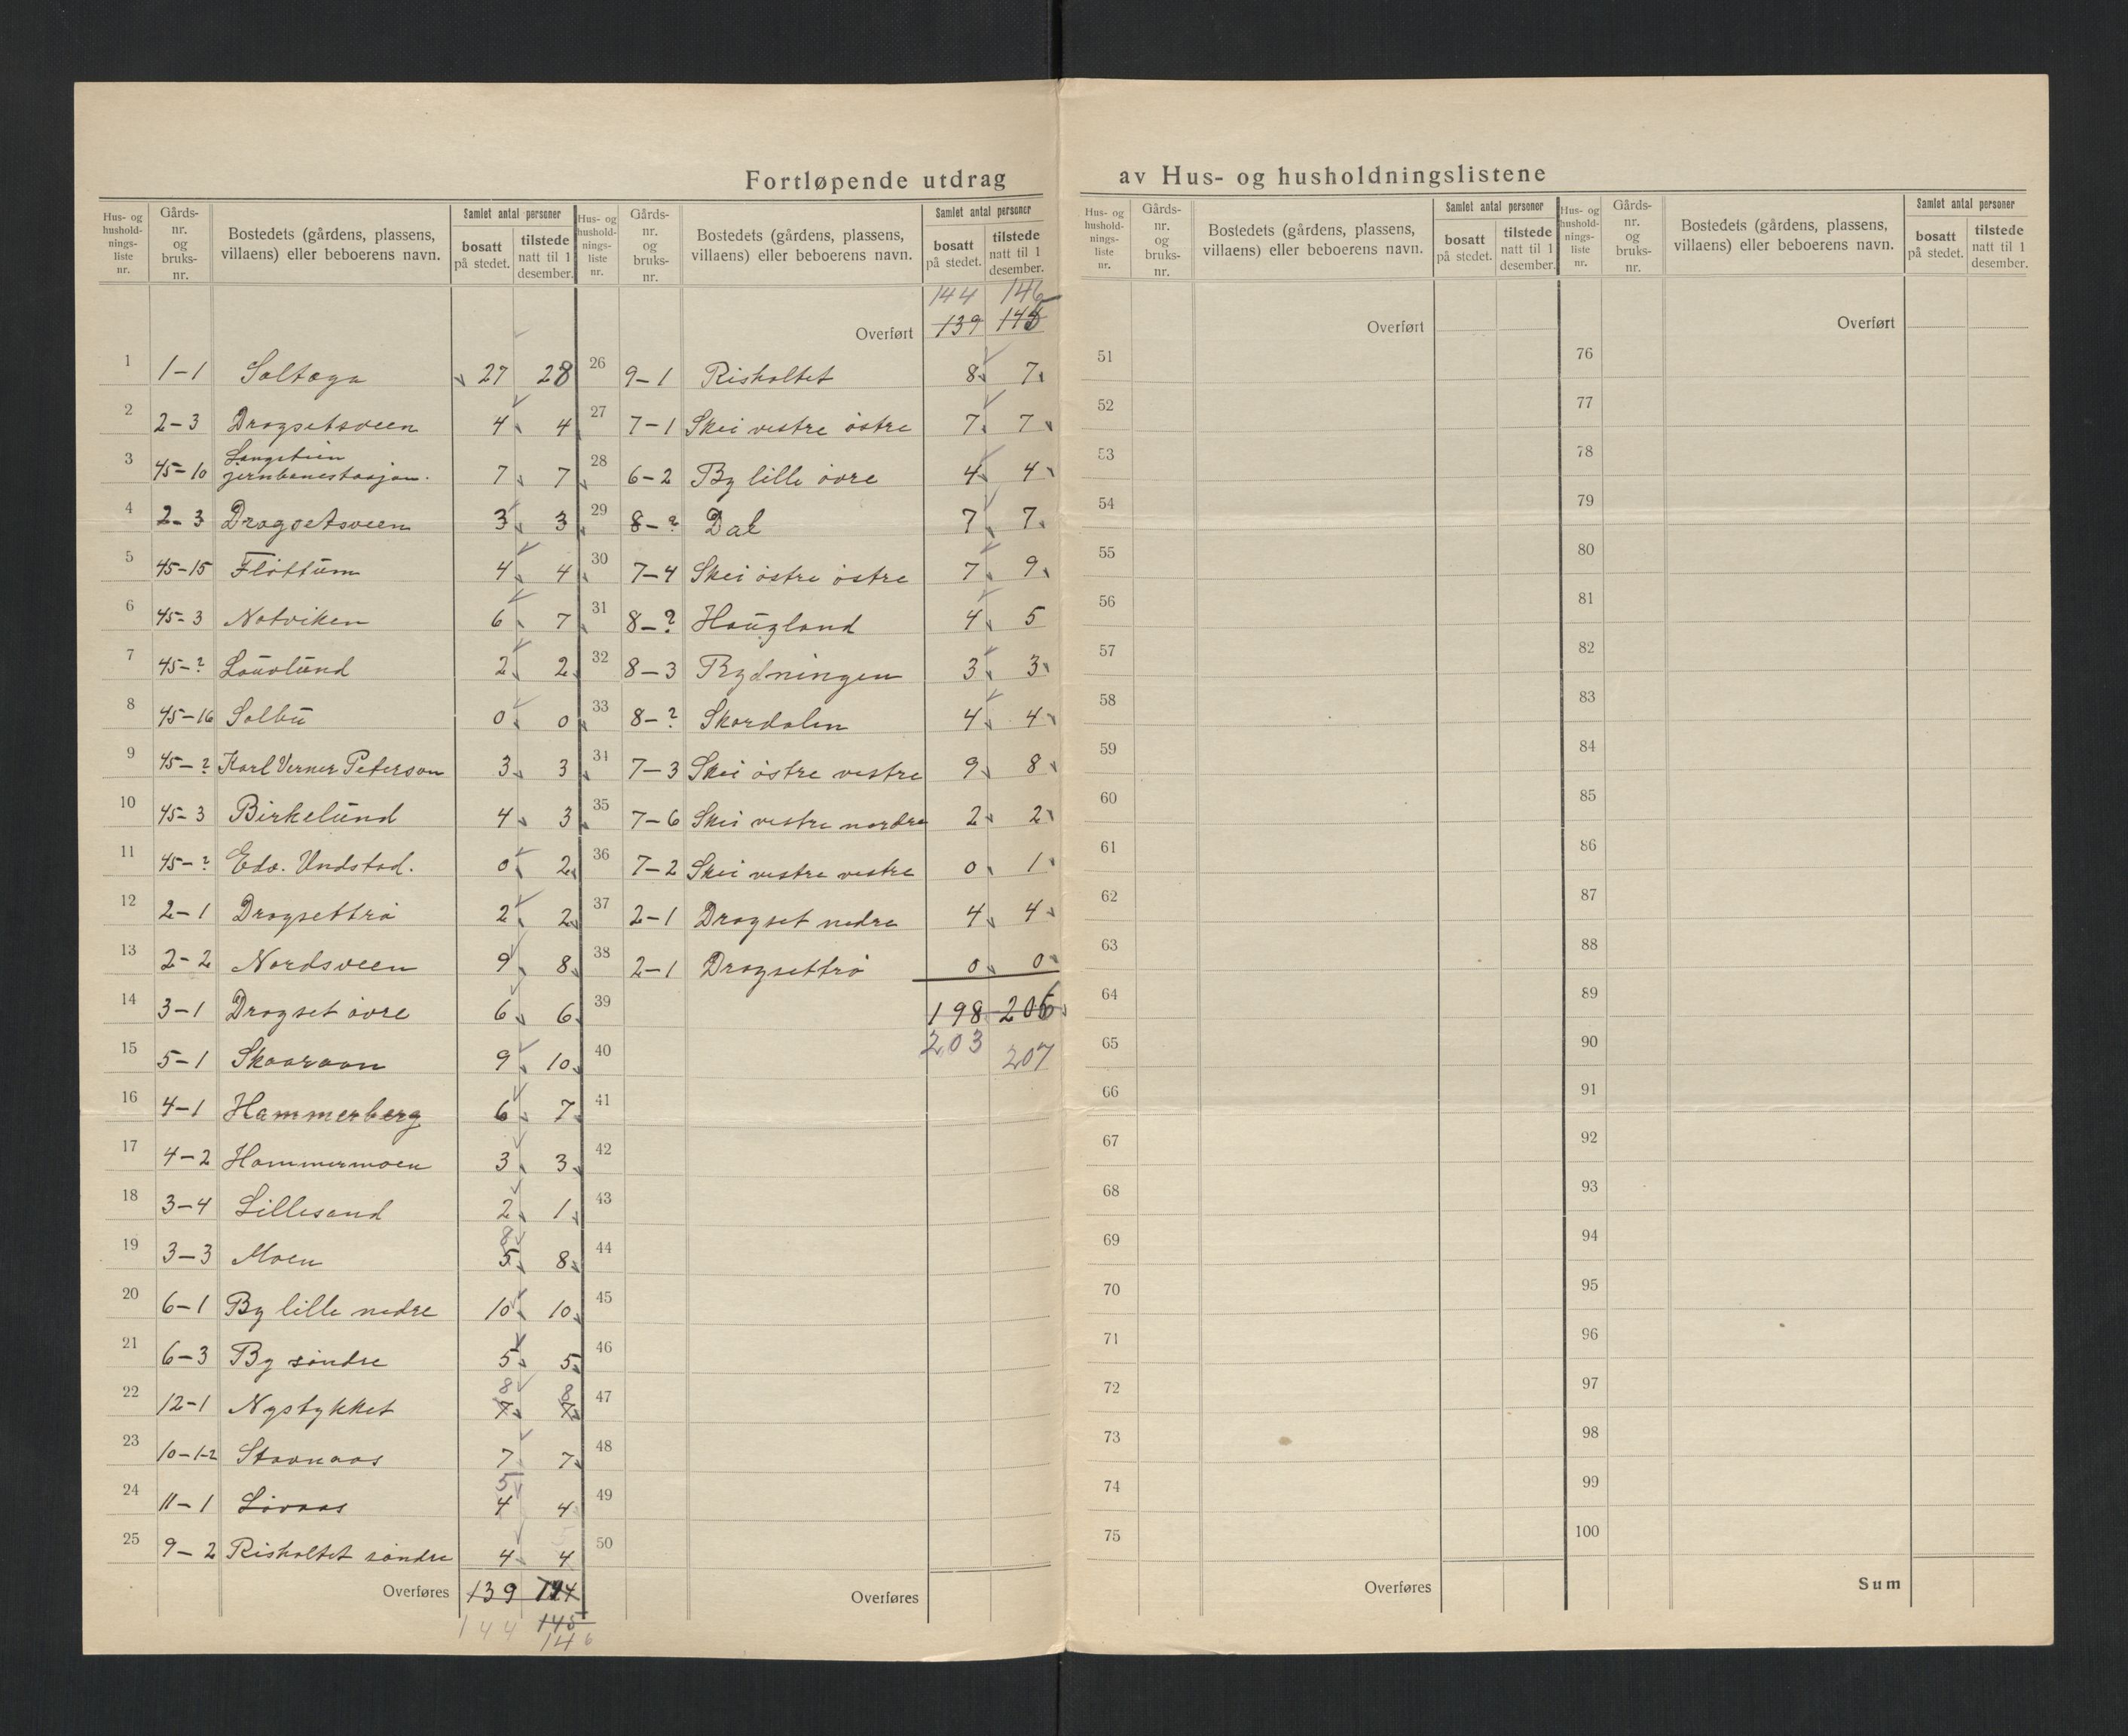 Fortløpende utdrag av Hus- og husholdningslistene
Hus- og hushold-nings-liste nr. Gårds-nr. og bruks-nr. Bostedets (gårdens, plassens, villaens) eller beboerens navn. Samlet antal personer bosatt på stedet. tilstede natt til 1 desember.
1 1-1 Saltøga 27 28
2 2-3 Dragsetsveen 4 4
3 45-10 Langstein jernbanestasjon. 7 7
4 2-3 Dragsetsveen 3 3
5 45-15 Fløttum 4 4
6 45-3 Notviken 6 7
7 45-? Lauvlund 2 2
8 45-16 Solbu 0 0
9 45-? Karl Verner Peterson 3 3
10 45-3 Birkelund 4 3
11 45-? Edv. Undstad. 0 2
12 2-1 Dragsettrø 2 2
13 2-2 Nordsveen 9 8
14 3-1 Dragset øvre 6 6
15 5-1 Skaaraan 9 10
16 4-1 Hammerberg 6 7
17 4-2 Hammermoen 3 3
18 3-4 Lillesand 2 1
19 3-3 Moen 8 5 8
20 6-1 By lille nedre 10 10
21 6-3 By søndre 5 5
22 12-1 Nystykket 8 7 8 7
23 10-1-2 Stavnaas 7 7
24 11-1 Løvaas 5 4 4
25 9-2 Risholtet søndre 4 4
Overføres 139 144
144 145
146
Hus- og hushold-nings-liste nr. Gårds-nr. og bruks-nr. Bostedets (gårdens, plassens, villaens) eller beboerens navn. Samlet antal personer bosatt på stedet. tilstede natt til 1 desember.
144 146
Overført 139 145
26 9-1 Risholtet 8 7
27 7-1 Skei vestre østre 7 7
28 6-2 By lille øvre 4 4
29 8-? Dal 7 7
30 7-4 Skei østre østre 7 9
31 8-? Haugland 4 5
32 8-3 Rydningen 3 3
33 8-? Skardalen 4 4
34 7-3 Skei østre vestre 9 8
35 7-6 Skei vestre nordre 2 2
36 7-2 Skei vestre vestre 0 1
37 2-1 Dragset nedre 4 4
38 2-1 Dragsettrø 0 0
39 198 206
40 203 207
41
42
43
44
45
46
47
48
49
50
Overføres
Hus- og hushold-nings-liste nr. Gårds-nr. og bruks-nr. Bostedets (gårdens, plassens, villaens) eller beboerens navn. Samlet antal personer bosatt på stedet. tilstede natt til 1 desember.
Overført
51
52
53
54
55
56
57
58
59
60
61
62
63
64
65
66
67
68
69
70
71
72
73
74
75
Overføres
Hus- og hushold-nings-liste nr. Gårds-nr. og bruks-nr. Bostedets (gårdens, plassens, villaens) eller beboerens navn. Samlet antal personer bosatt på stedet. tilstede natt til 1 desember.
Overført
76
77
78
79
80
81
82
83
84
85
86
87
88
89
90
91
92
93
94
95
96
97
98
99
100
Sum